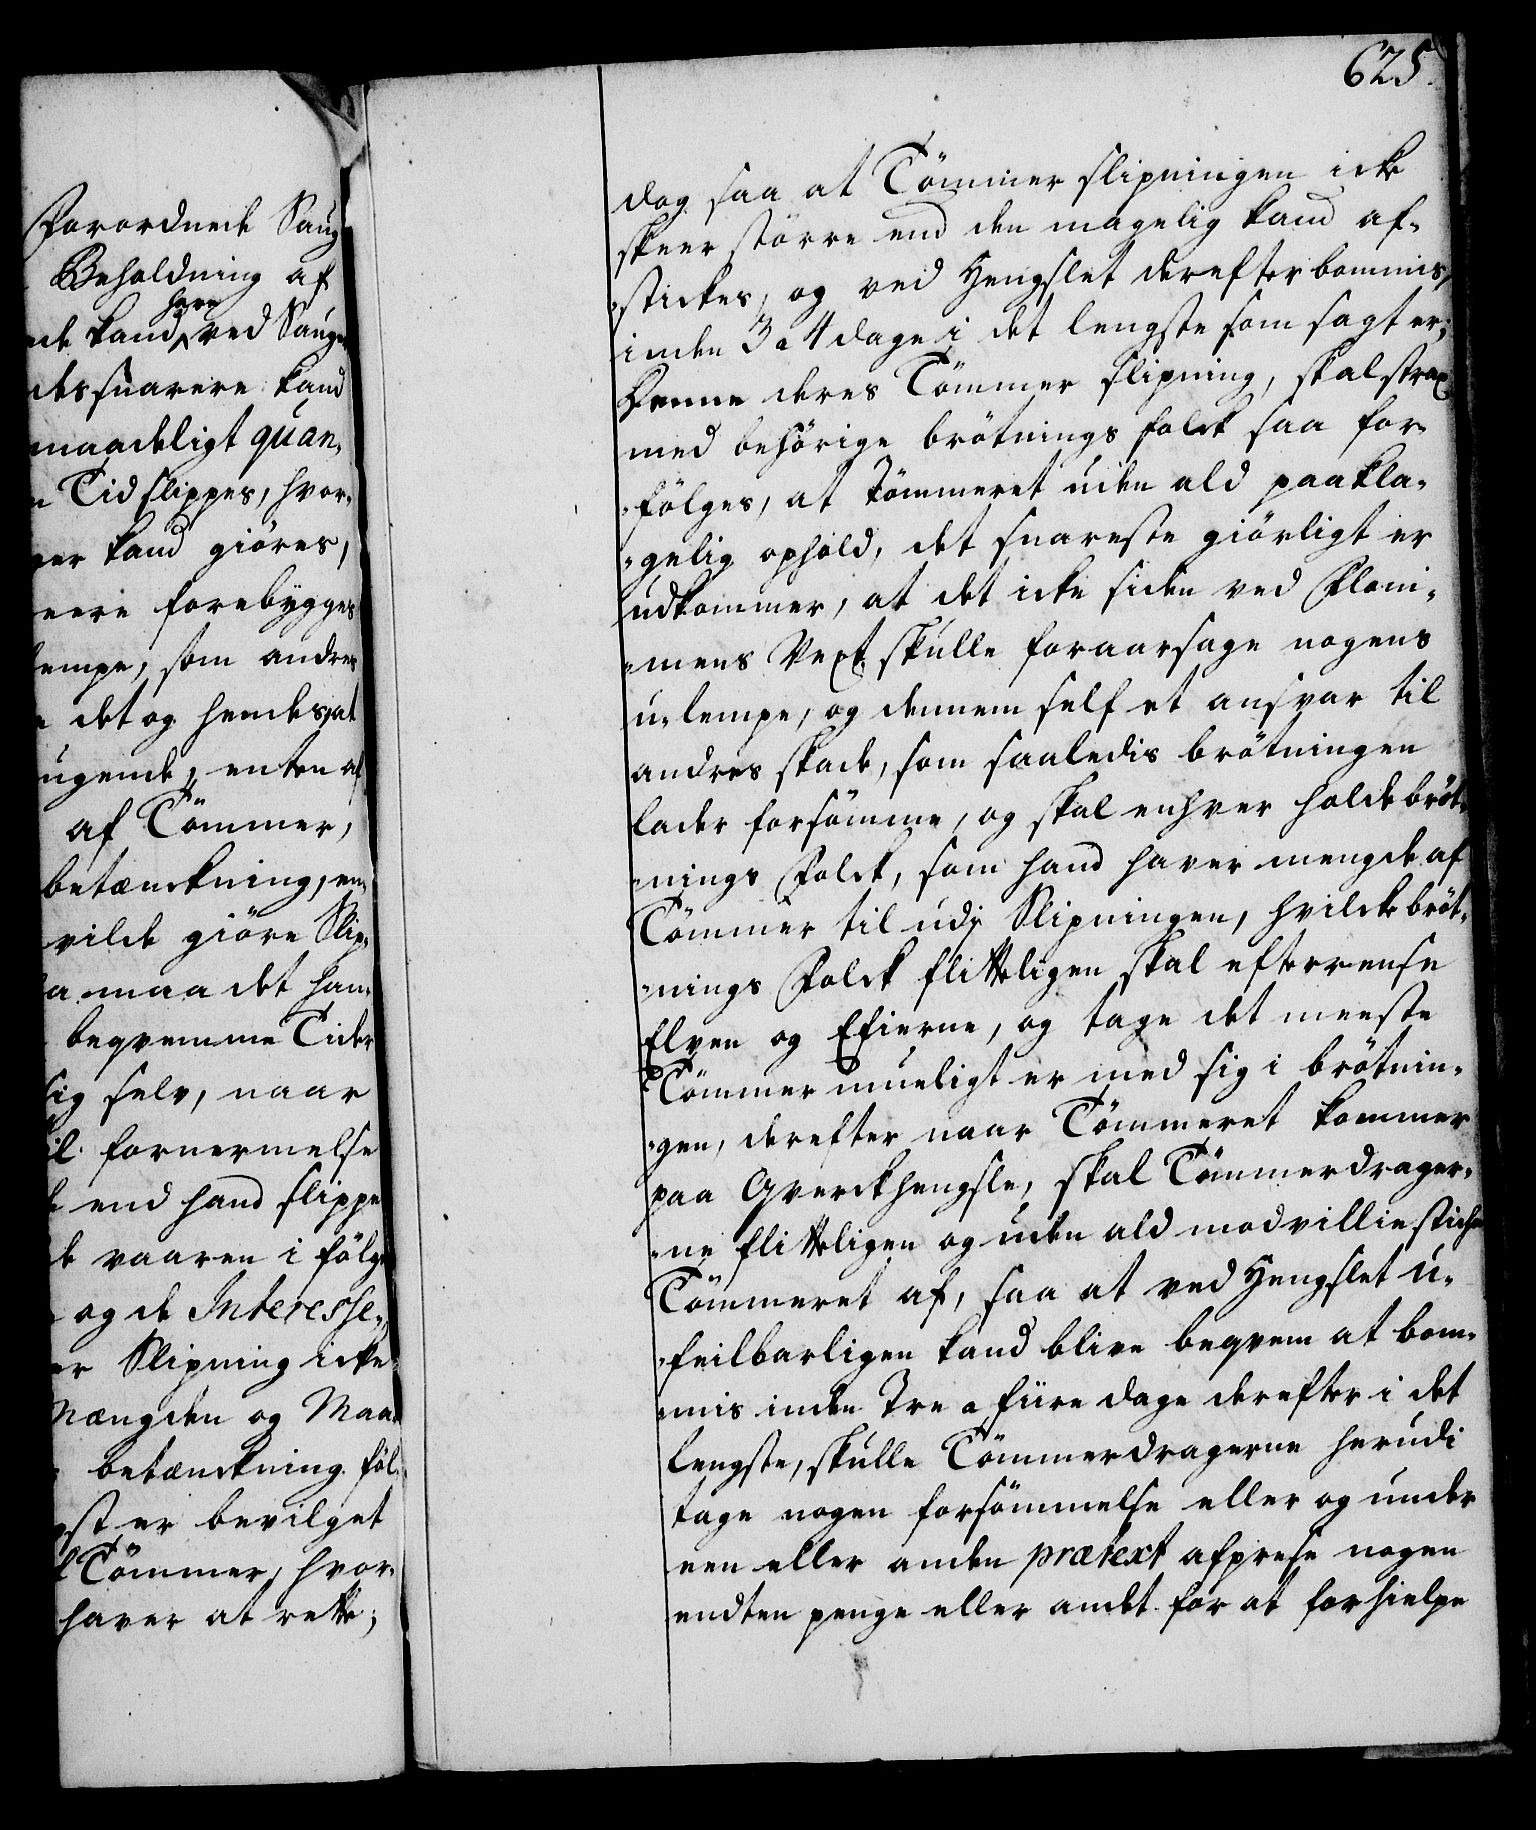 Forordnede Saug-
Beholdning af
nde kand have ved Sauge
des snarere kand
maadeligt quan-
n Tid slippes, hvor-
ger kand giöres,
nere forebygges
lempe, som andres
n det og hendes, at
ugende, enten af
af Tömmer,
betænckning, en-
vilde giöre Slip-
a maa det ham
beqvemme Tider
sig selv, naar
il fornermelse
k end hand slippe
de vaaren i fölge
og de Interesse-
er Slipning icke
Mængden og Maa-
betænckning föl-
gst er bevilget
l Tömmer, hvor-
haver at rette;
625.
dog saa at Tömmer slipningen icke
skeer större end den magelig kand af-
stickes, og ved Hengslet derefter bommis,
inden 3 a 4 dage i det lengste som sagt er;
Denne deres Tömmer slipning, skal strax
med behörige brötnings folck saa for-
fölges, at Tömmeret uden ald paakla-
gelig ophold, det snareste giörligt er
udkommer, at det icke siden ved Flom-
mens Vext skulle foraarsage nogens
u-lempe, og dennem self et ansvar til
andres skade, som saaledis brötningen
lader forsömme, og skal enhver holde bröt-
nings Folck, som hand haver mengde af
Tömmer til udj Slipningen, hvilcke bröt-
nings Folck flitteligen skal efterrense
Elven og Efierne, og tage det meeste
Tömmer mueligt er med sig i brötnin-
gen, derefter naar Tömmeret kommer
paa Qverckhengsle, skal Tömmerdrager-
ne flitteligen og uden ald modvillie sticke
Tömmeret af, saa at ved Hengslet u-
feilbarligen kand blive beqvem at bom-
mis inden Tre a fiire dage derefter i det
lengste, skulle Tömmerdragerne herudi
tage nogen forsömmelse eller og under
een eller anden prætext afprese nogen
endten penge eller andet for at forhielpe